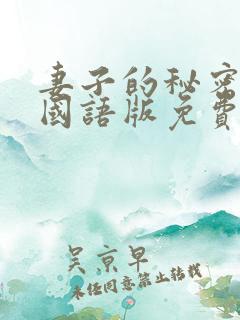 妻子的秘密
國語版免費
吴京早
未经同意禁止转载